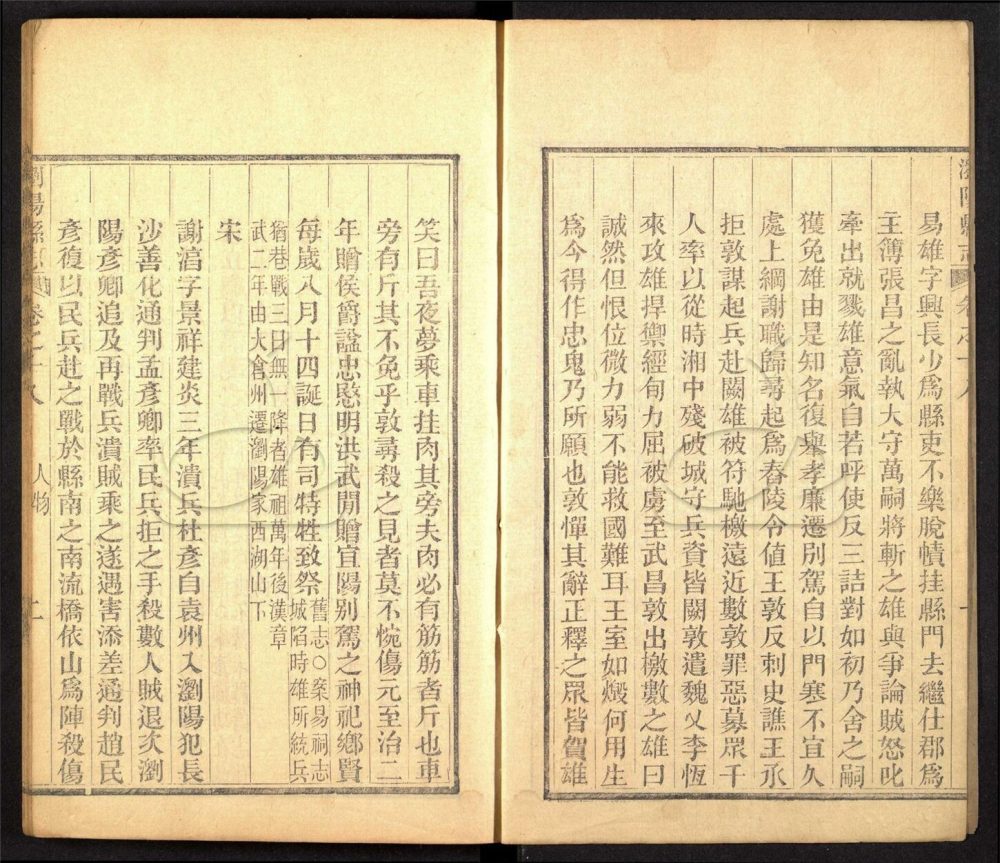 瀏陽縣志 卷之十八
易雄字興長少爲縣吏不樂脫幘挂縣門去繼仕郡爲
主簿張昌之亂執大守萬嗣將斬之雄與爭論賊怒叱
牽出就戮雄意氣自若呼使反三詰對如初乃舍之嗣
獲免雄由是知名復舉孝廉遷別駕自以門寒不宜久
處上綱謝職歸尋起爲舂陵令値王敦反刺史譙王承
拒敦謀起兵赴闕雄被符馳檄遠近數敦罪惡募眾千
人率以從時湘中殘破城守兵資皆闕敦遣魏乂李恆
來攻雄捍禦經旬力屈被虜至武昌敦出檄數之雄曰
誠然但恨位微力弱不能救國難耳王室如燬何用生
爲今得作忠鬼乃所願也敦憚其辭正釋之眾皆賀雄
笑曰吾夜夢乘車挂肉其旁夫肉必有筋筋者斤也車
旁有斤其不免乎敦尋殺之見者莫不惋傷元至治二
年贈侯爵謚忠愍明洪武閒贈宜陽別駕之神祀鄉賢
每歲八月十四誕日有司特牲致祭舊志○案易祠志
城陷時雄所統兵
猶巷戰三日無一降者雄祖萬年後漢章
武二年由大倉州遷瀏陽家西湖山下
宋
謝滈字景祥建炎三年潰兵杜彥自袁州入瀏陽犯長
沙善化通判孟彥卿率民兵拒之手殺數人賊退次瀏
陽彥卿追及再戰兵潰賊乘之遂遇害添差通判趙民
彥復以民兵赴之戰於縣南之南流橋依山爲陣殺傷
瀏陽縣志 卷之十八 人物